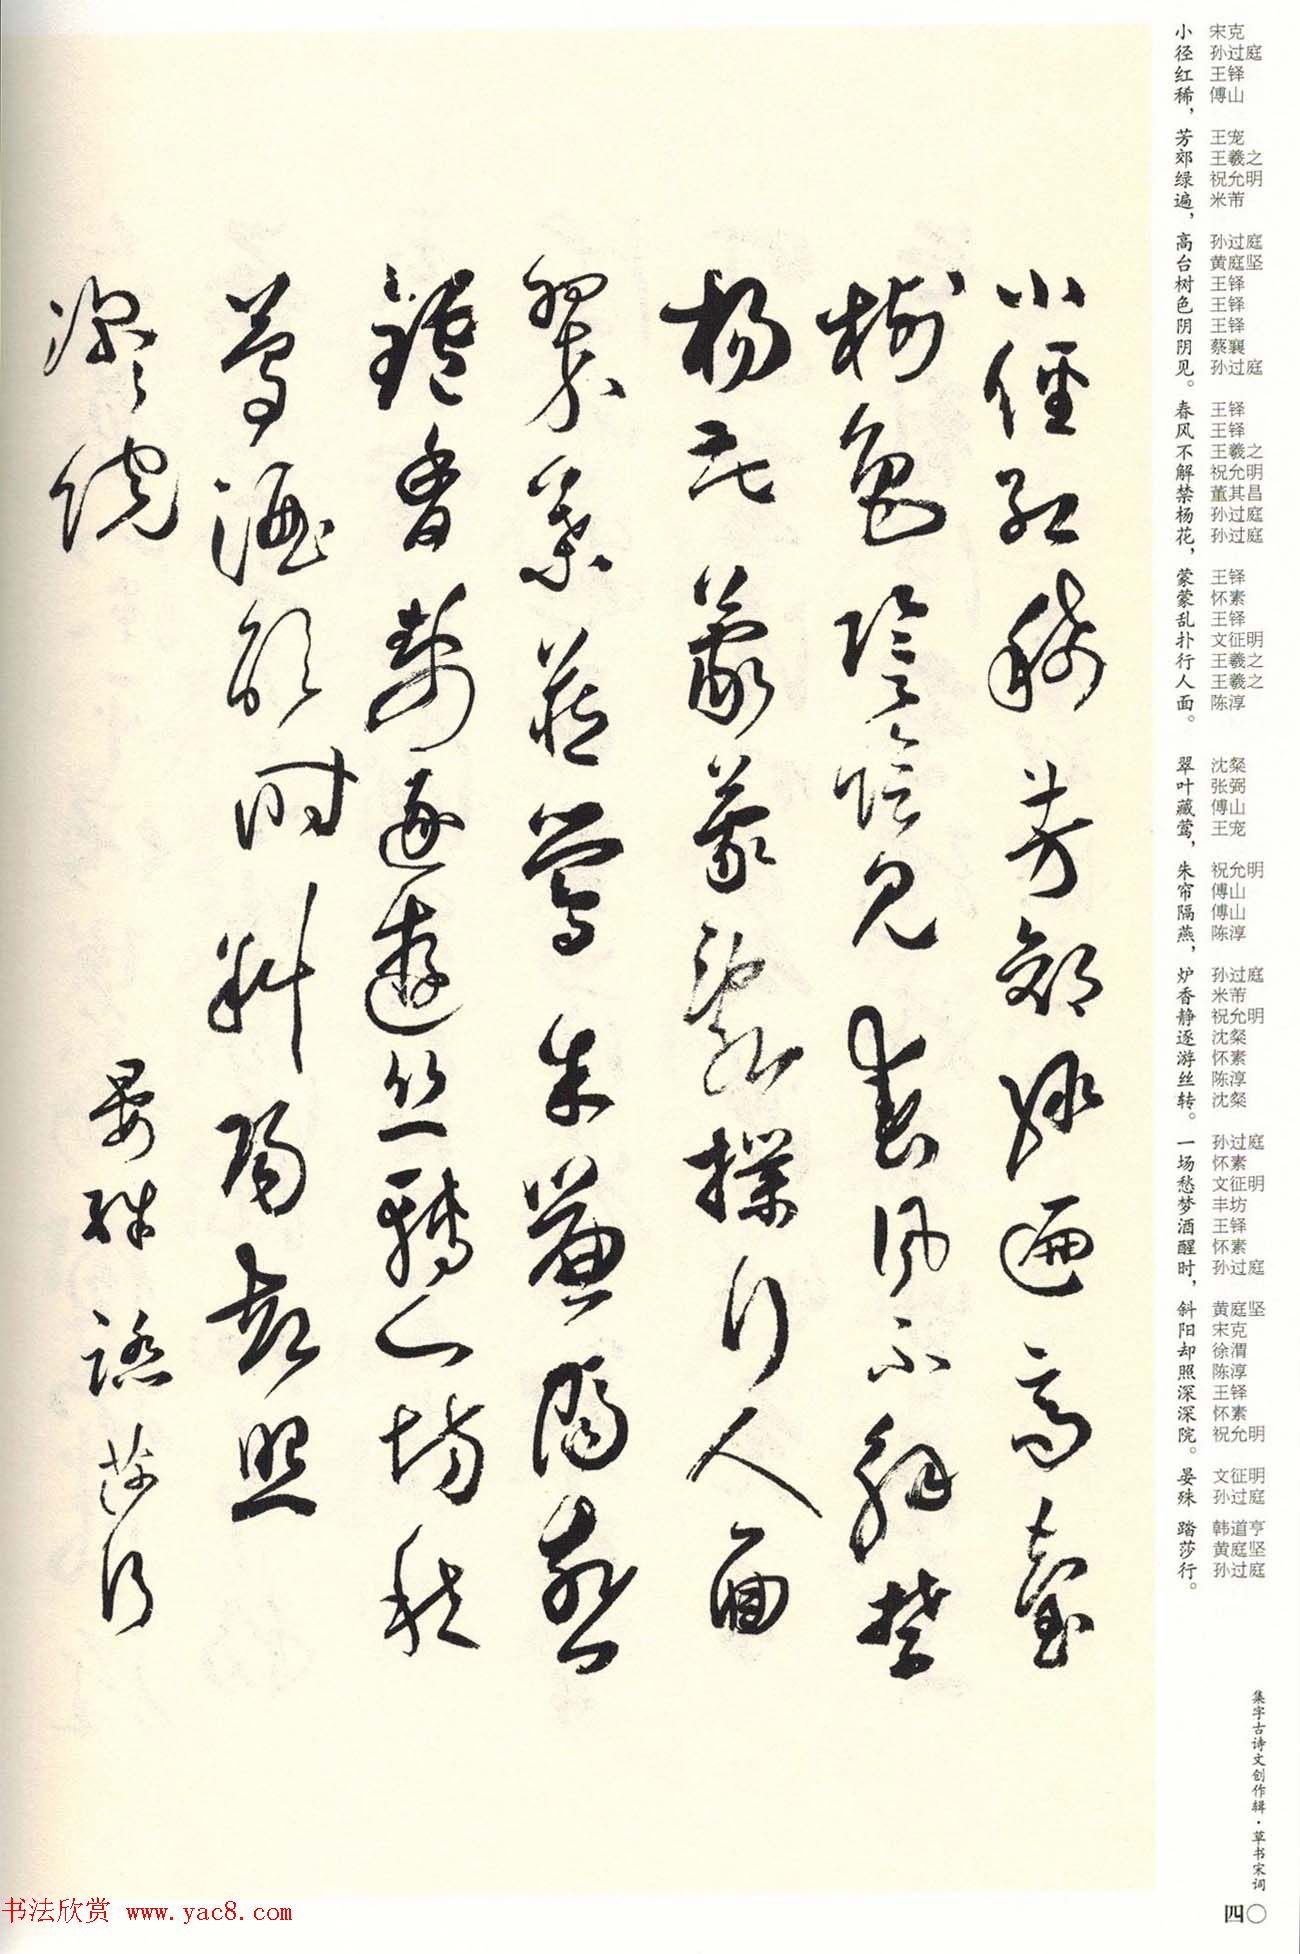 小径红稀，芳郊绿遍，高台树色阴阴见。春风不解禁杨花，蒙蒙乱扑行人面。
翠叶藏莺，朱帘隔燕，炉香静逐游丝转。一场愁梦酒醒时，斜阳却照深深院。晏殊 踏莎行。
宋克 孙过庭 王铎 傅山 王宠 王羲之 祝允明 米芾 孙过庭 黄庭坚 王铎 王铎 王铎 蔡襄 孙过庭 王铎 王铎 王羲之 祝允明 董其昌 孙过庭 孙过庭 王铎 怀素 王铎 文征明 王羲之 王羲之 陈淳
沈粲 张弼 傅山 王宠 祝允明 傅山 傅山 陈淳 孙过庭 米芾 祝允明 沈粲 怀素 陈淳 沈粲 孙过庭 怀素 文征明 丰坊 王铎 怀素 孙过庭 黄庭坚 宋克 徐渭 陈淳 王铎 怀素 祝允明 文征明 孙过庭 韩道亨 黄庭坚 孙过庭
小徑紅稀芳郊綠遍高臺
樹色陰陰見春風不解禁
楊花蒙蒙亂撲行人面
翠葉藏鶯朱簾隔燕
鑪香靜逐遊絲轉一場愁
夢酒醒時斜陽却照
深深院
晏殊踏莎行
集字古诗文创作辑·草书宋词
四〇
书法欣赏 www.yac8.com